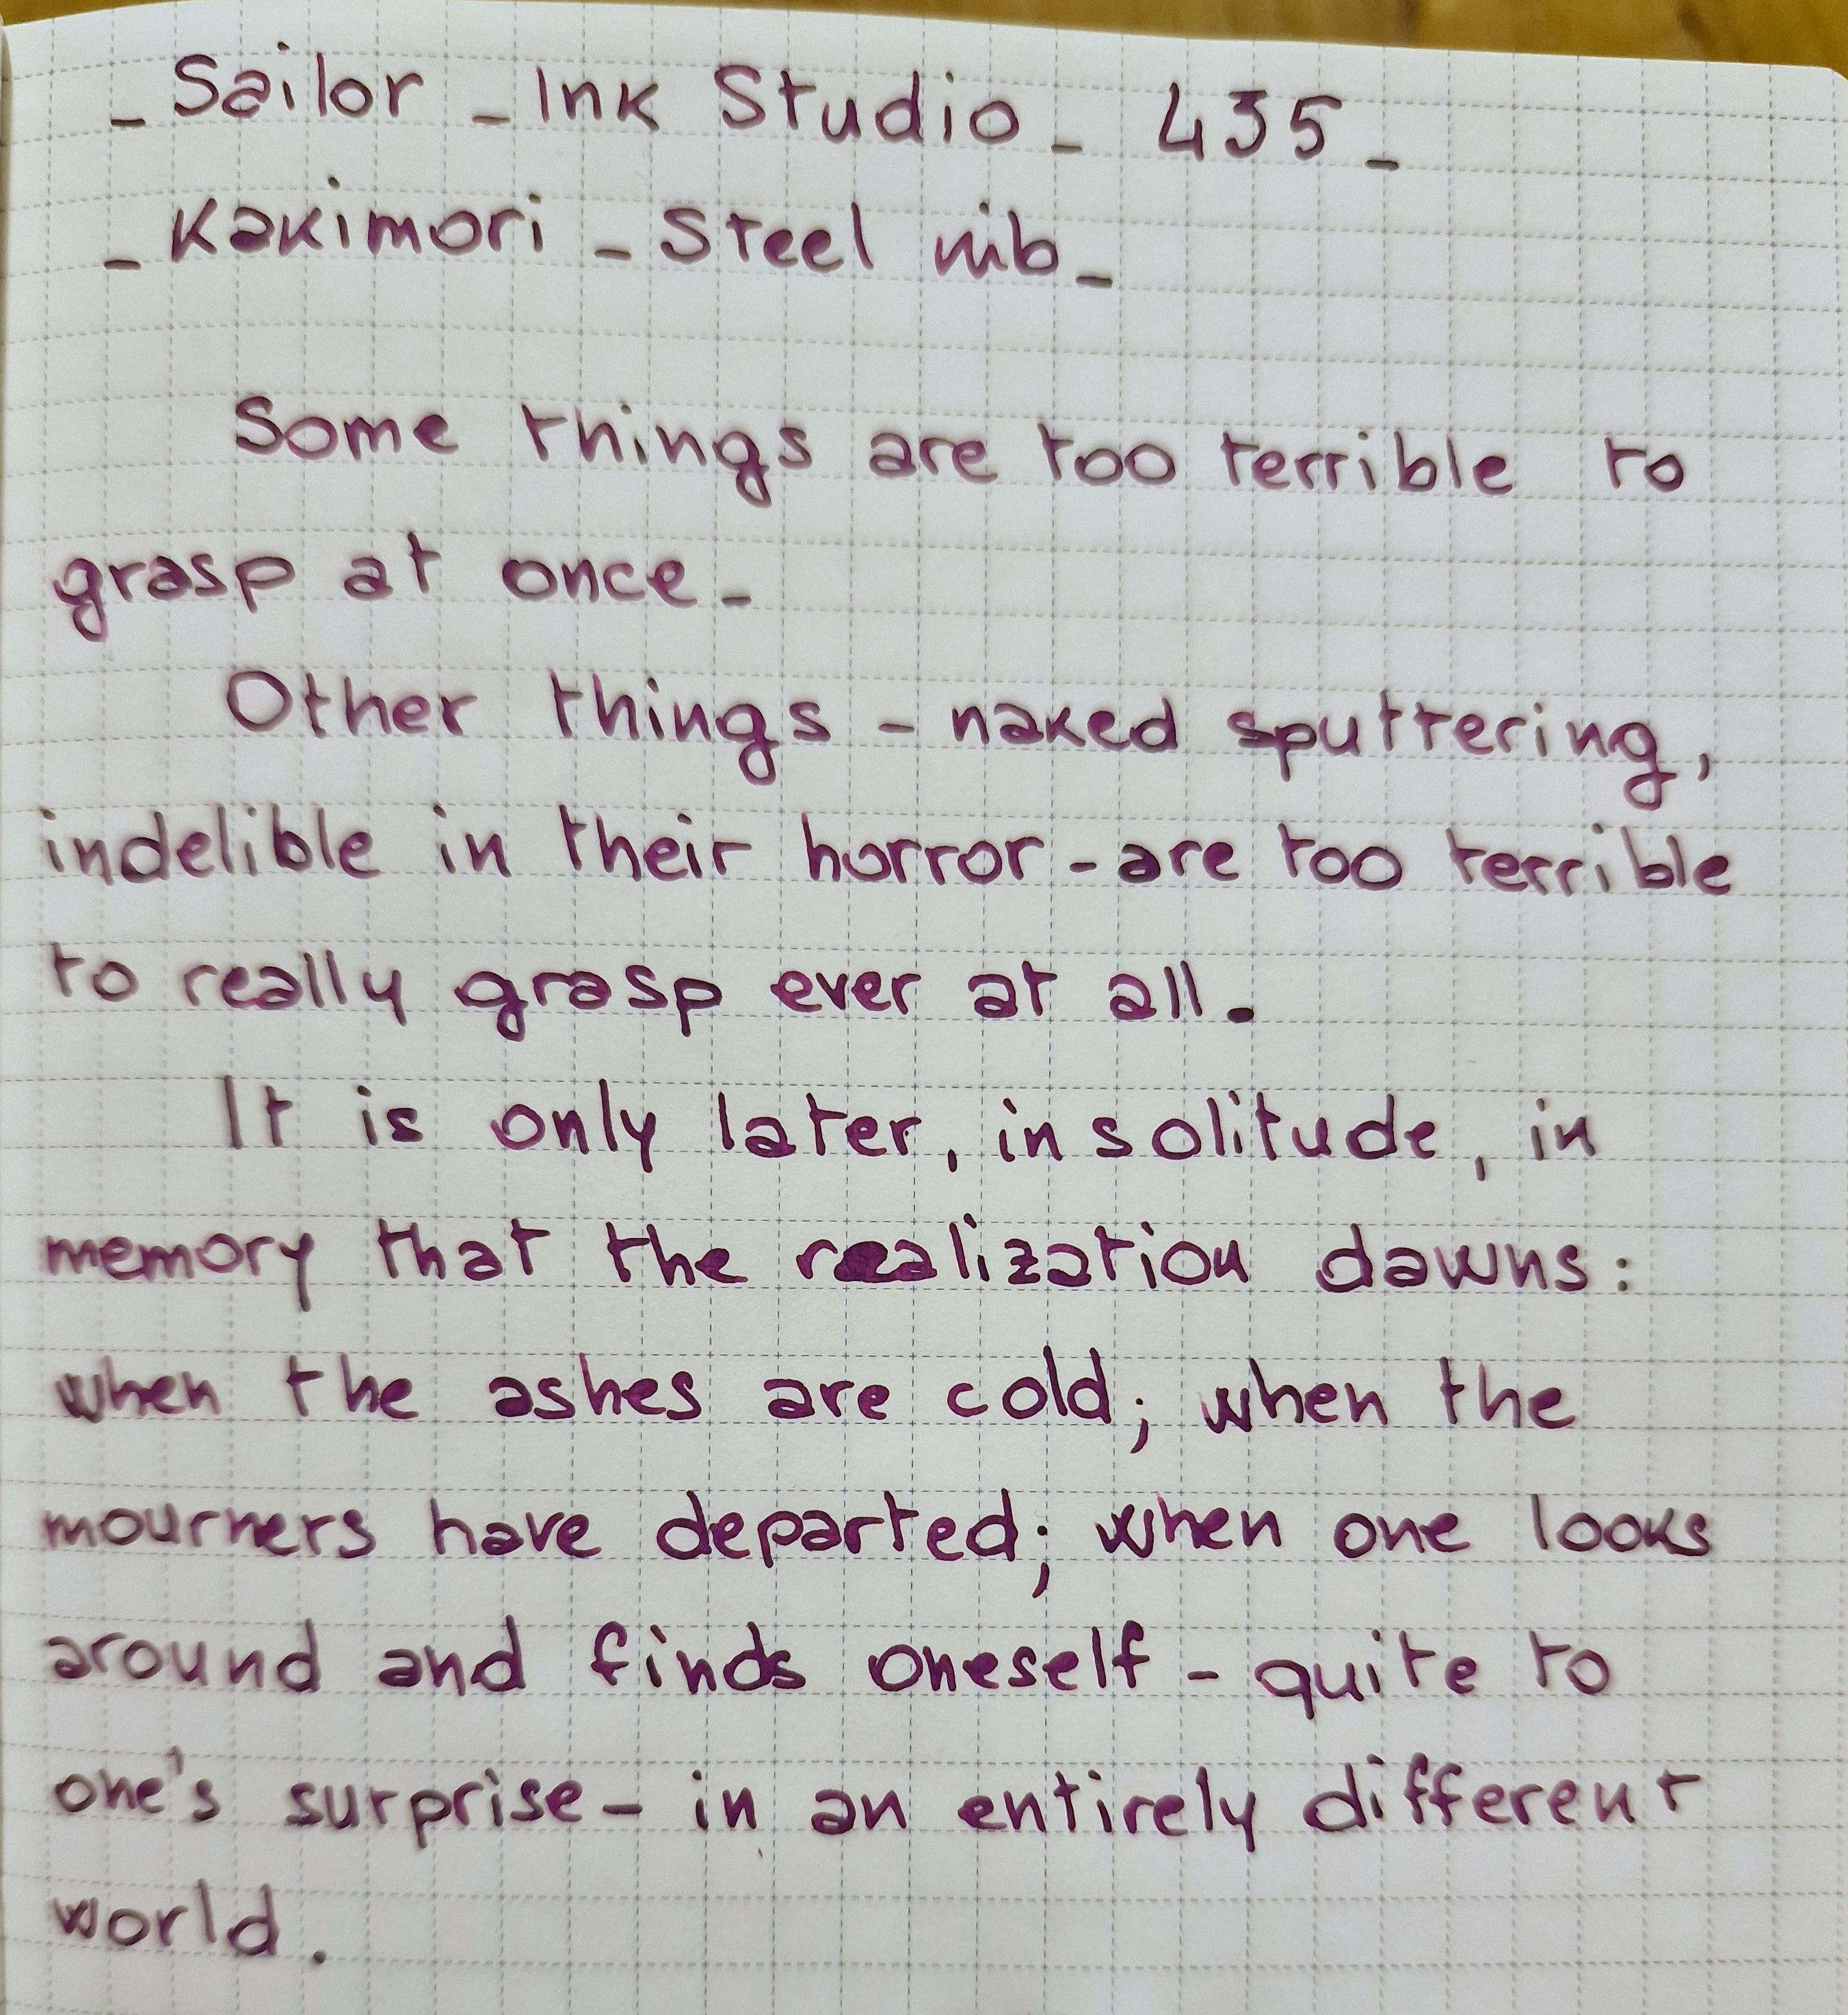 _ Sailor _ Ink Studio _ 435 _
_ Kakimori _ Steel nib _
Some things are too terrible to
grasp at once _
Other things - naked sputtering,
indelible in their horror - are too terrible
to really grasp ever at all.
It is only later, in solitude, in
memory that the realization dawns:
when the ashes are cold; when the
mourners have departed; when one looks
around and finds oneself - quite to
one's surprise - in an entirely different
world.